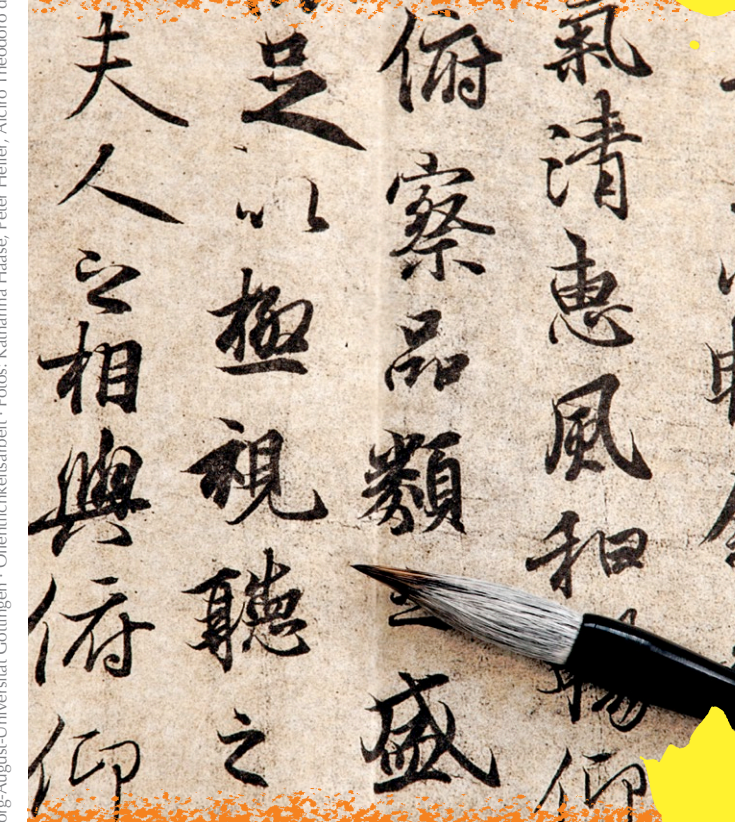 氣清惠風和暢仰
俯察品類之盛
足以極視聽之
夫人之相與俯仰
Universität Göttingen · Öffentlichkeitsarbeit · Fotos: Katharina Haase, Peter Heller, Alciro Theodoro